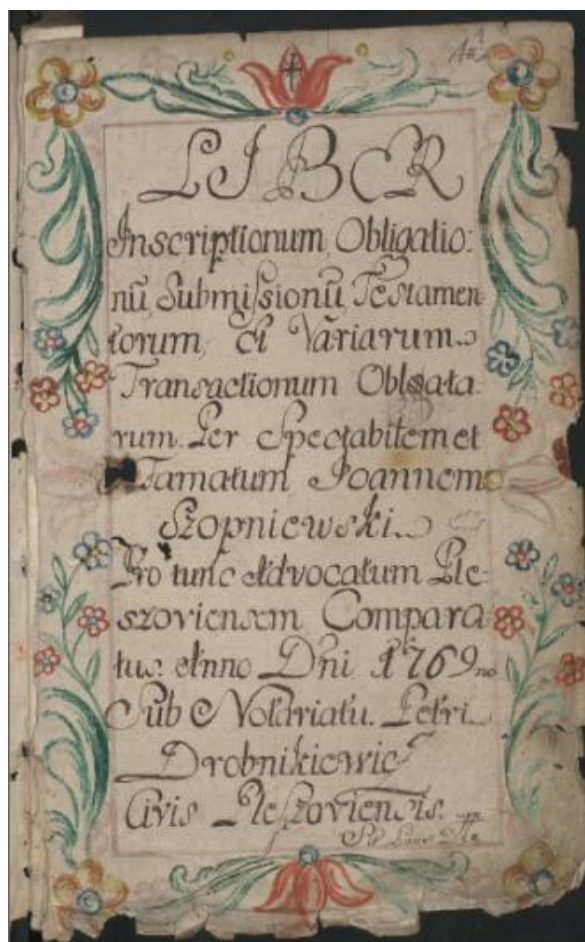 LIBER
Inscriptionum, Obligatio:
nũ, Submissionũ, Testamen
torum, et Variarum
Transactionum Oblata
rum. Per Spectabilem et
Famatum Joannem
Szopniewski.
Pro tunc Advocatum Ple:
szoviensem Compara:
tus. Anno Dni 1769no
Sub Notariatu. Petri
Drobnikiewicz
Civis Pleszoviensis.